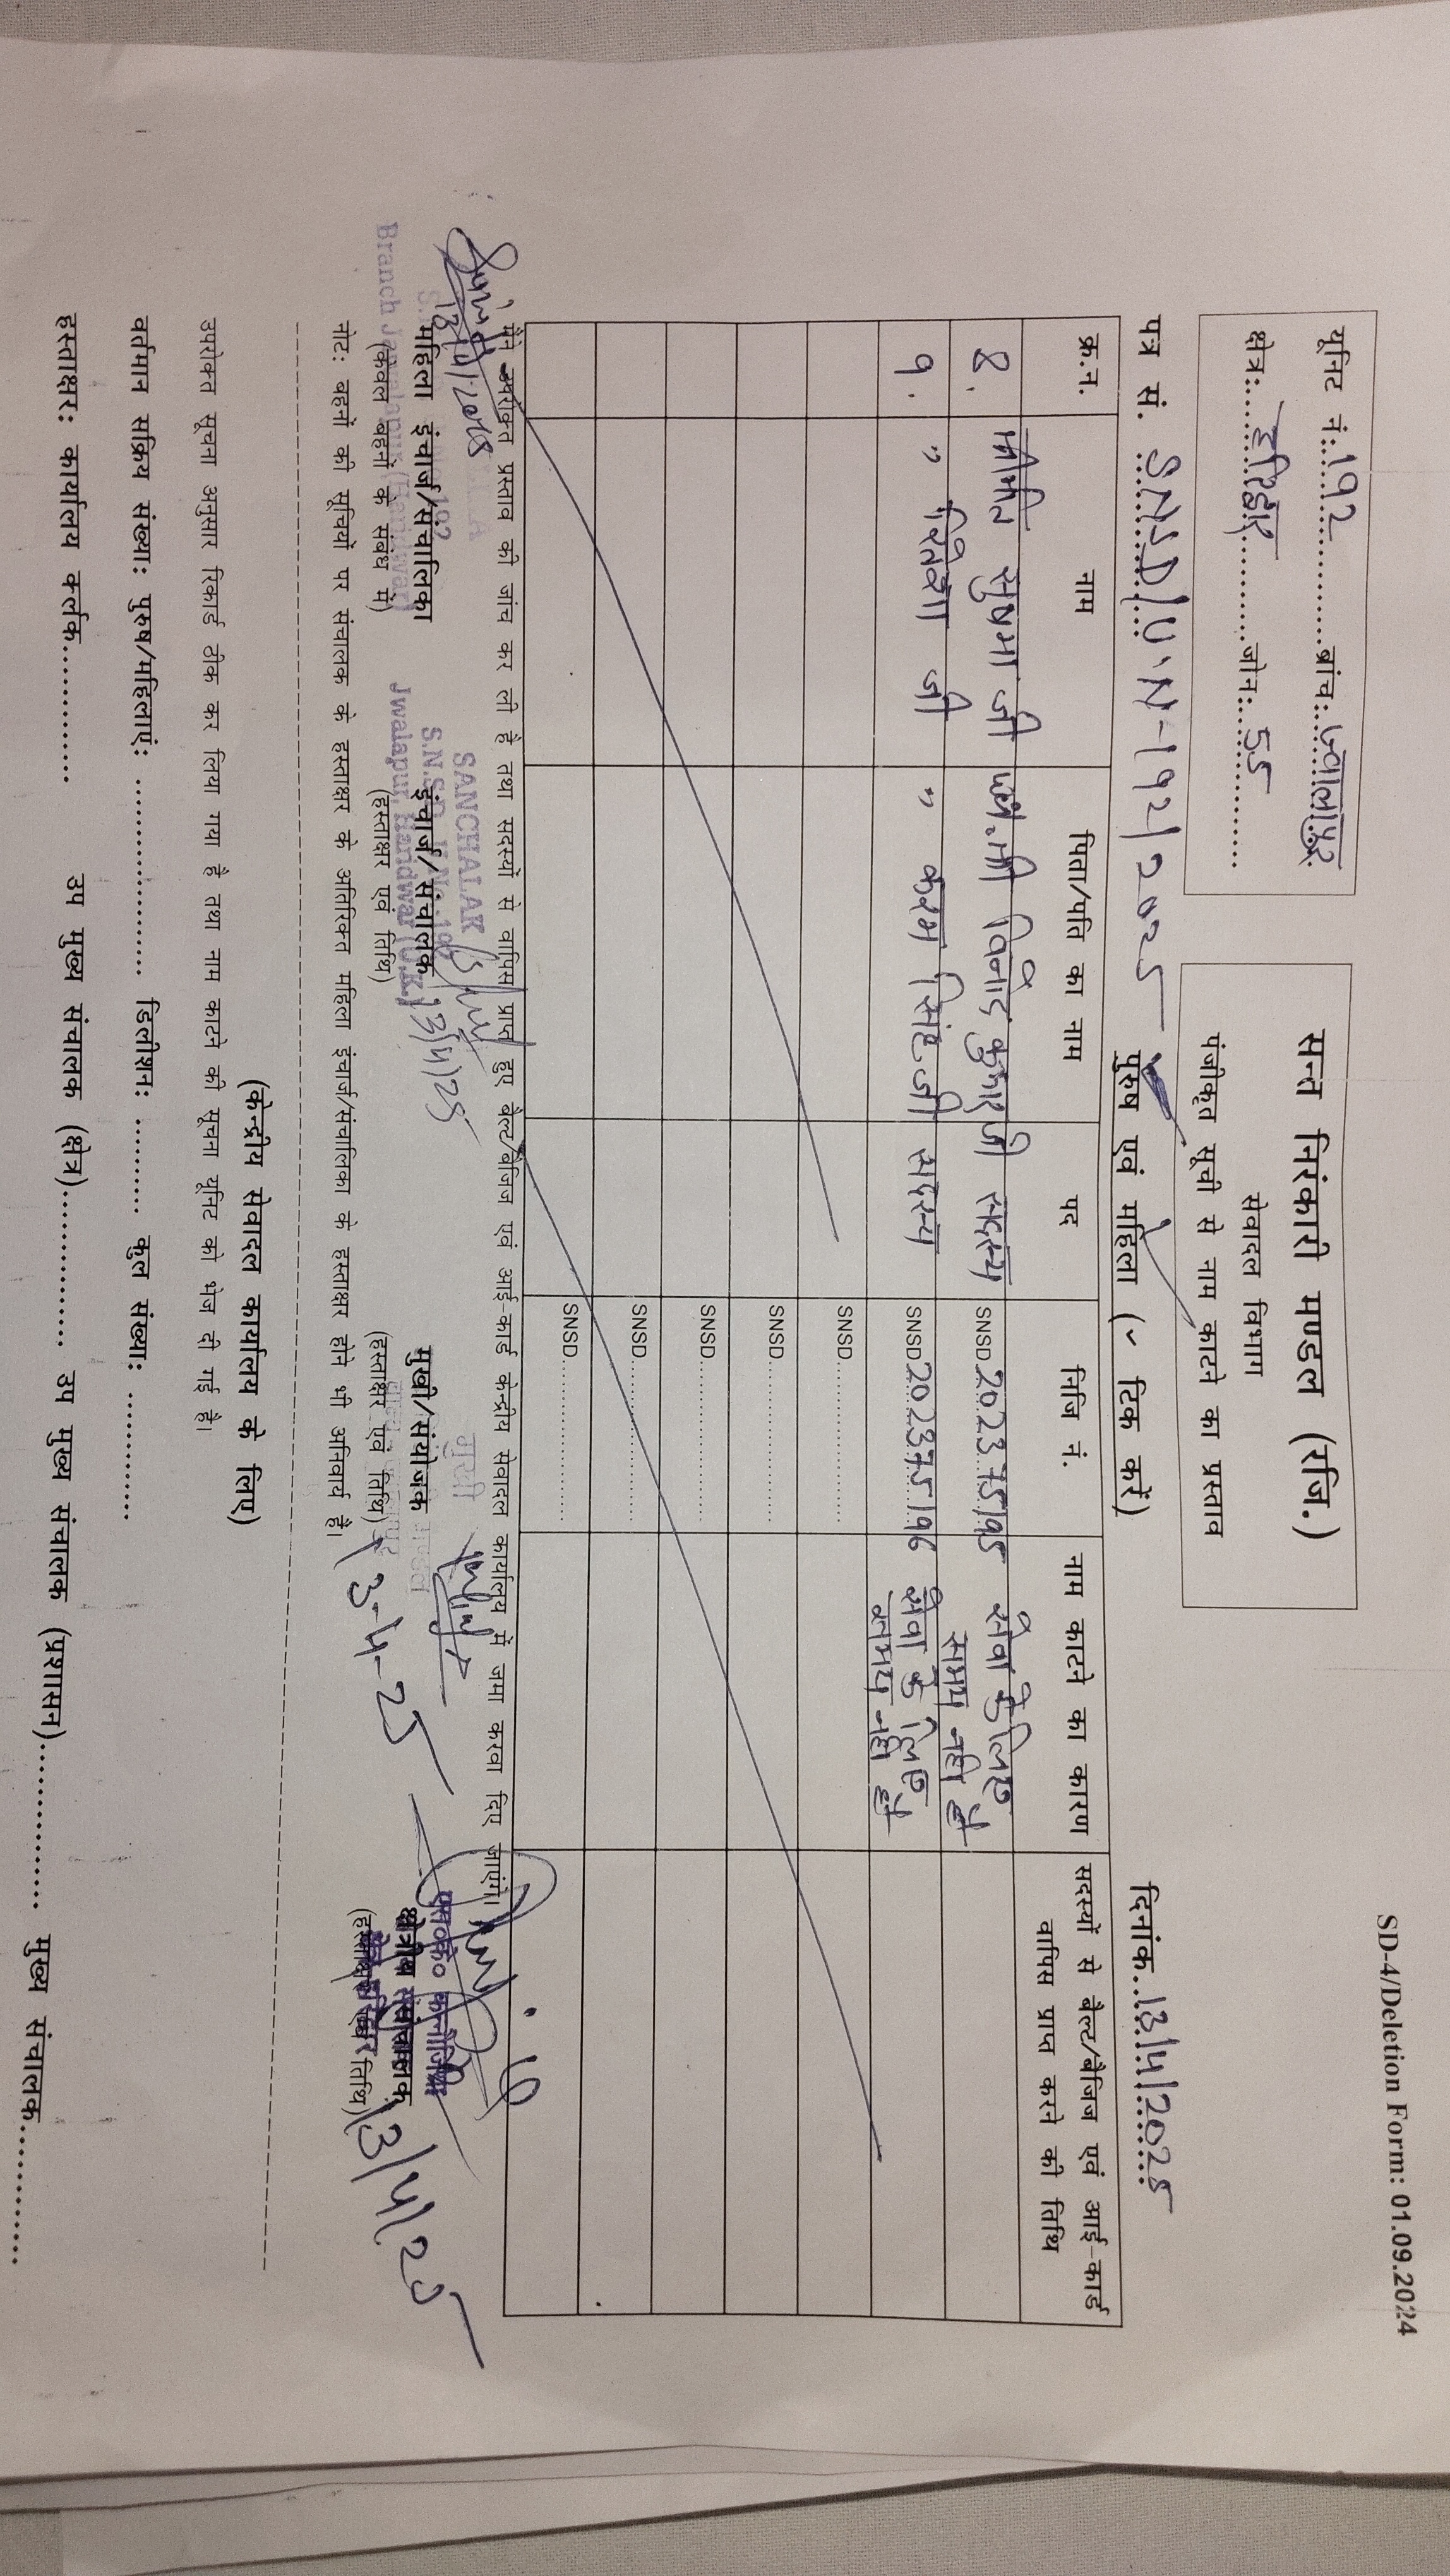 SD-4/Deletion Form: 01.09.2024
यूनिट नं: 192 ब्रांच: ज्वालापुर
क्षेत्र: हरिद्वार जोन: 55
सन्त निरंकारी मण्डल (रजि.)
सेवादल विभाग
पंजीकृत सूची से नाम काटने का प्रस्ताव
पत्र सं. SNSD/U.N-192/2025 पुरुष एवं महिला (✓ टिक करें) दिनांक 13/4/2025
क्र.न. नाम पिता/पति का नाम पद निजि नं. नाम काटने का कारण सदस्यों से बेल्ट/बैजिज एवं आई-कार्ड वापिस प्राप्त करने की तिथि
8. श्रीमति सुषमा जी श्री विनोद कुमार जी सदस्य SNSD 20237595 सेवा के लिए समय नही है
9. " रितवेश जी " करम सिंह जी सदस्य SNSD 20237596 सेवा के लिए समय नही है
SNSD
SNSD
SNSD
SNSD
SNSD
मैंने उपरोक्त प्रस्ताव की जांच कर ली है तथा सदस्यों से वापिस प्राप्त हुए बेल्ट/बैजिज एवं आई-कार्ड केन्द्रीय सेवादल कार्यालय में जमा करवा दिए जाएंगे।
13/4/2025
SANCHALAK
महिला इंचार्ज/संचालिका इंचार्ज/संचालक मुखी/संयोजक क्षेत्रीय संचालक
(केवल बहनों के संबंध में) (हस्ताक्षर एवं तिथि) (हस्ताक्षर एवं तिथि) (हस्ताक्षर एवं तिथि)
Branch Jwalapur (Haridwar) Jwalapur, Haridwar (U.K.) 13/4/25 13-4-25 13/4/25
नोट: बहनों की सूचियों पर संचालक के हस्ताक्षर के अतिरिक्त महिला इंचार्ज/संचालिका के हस्ताक्षर होने भी अनिवार्य है।
(केन्द्रीय सेवादल कार्यालय के लिए)
उपरोक्त सूचना अनुसार रिकार्ड ठीक कर लिया गया है तथा नाम काटने की सूचना यूनिट को भेज दी गई है।
वर्तमान सक्रिय संख्या: पुरुष/महिलाएं: डिलीशन: कुल संख्या:
हस्ताक्षर: कार्यालय क्लर्क उप मुख्य संचालक (क्षेत्र) उप मुख्य संचालक (प्रशासन) मुख्य संचालक